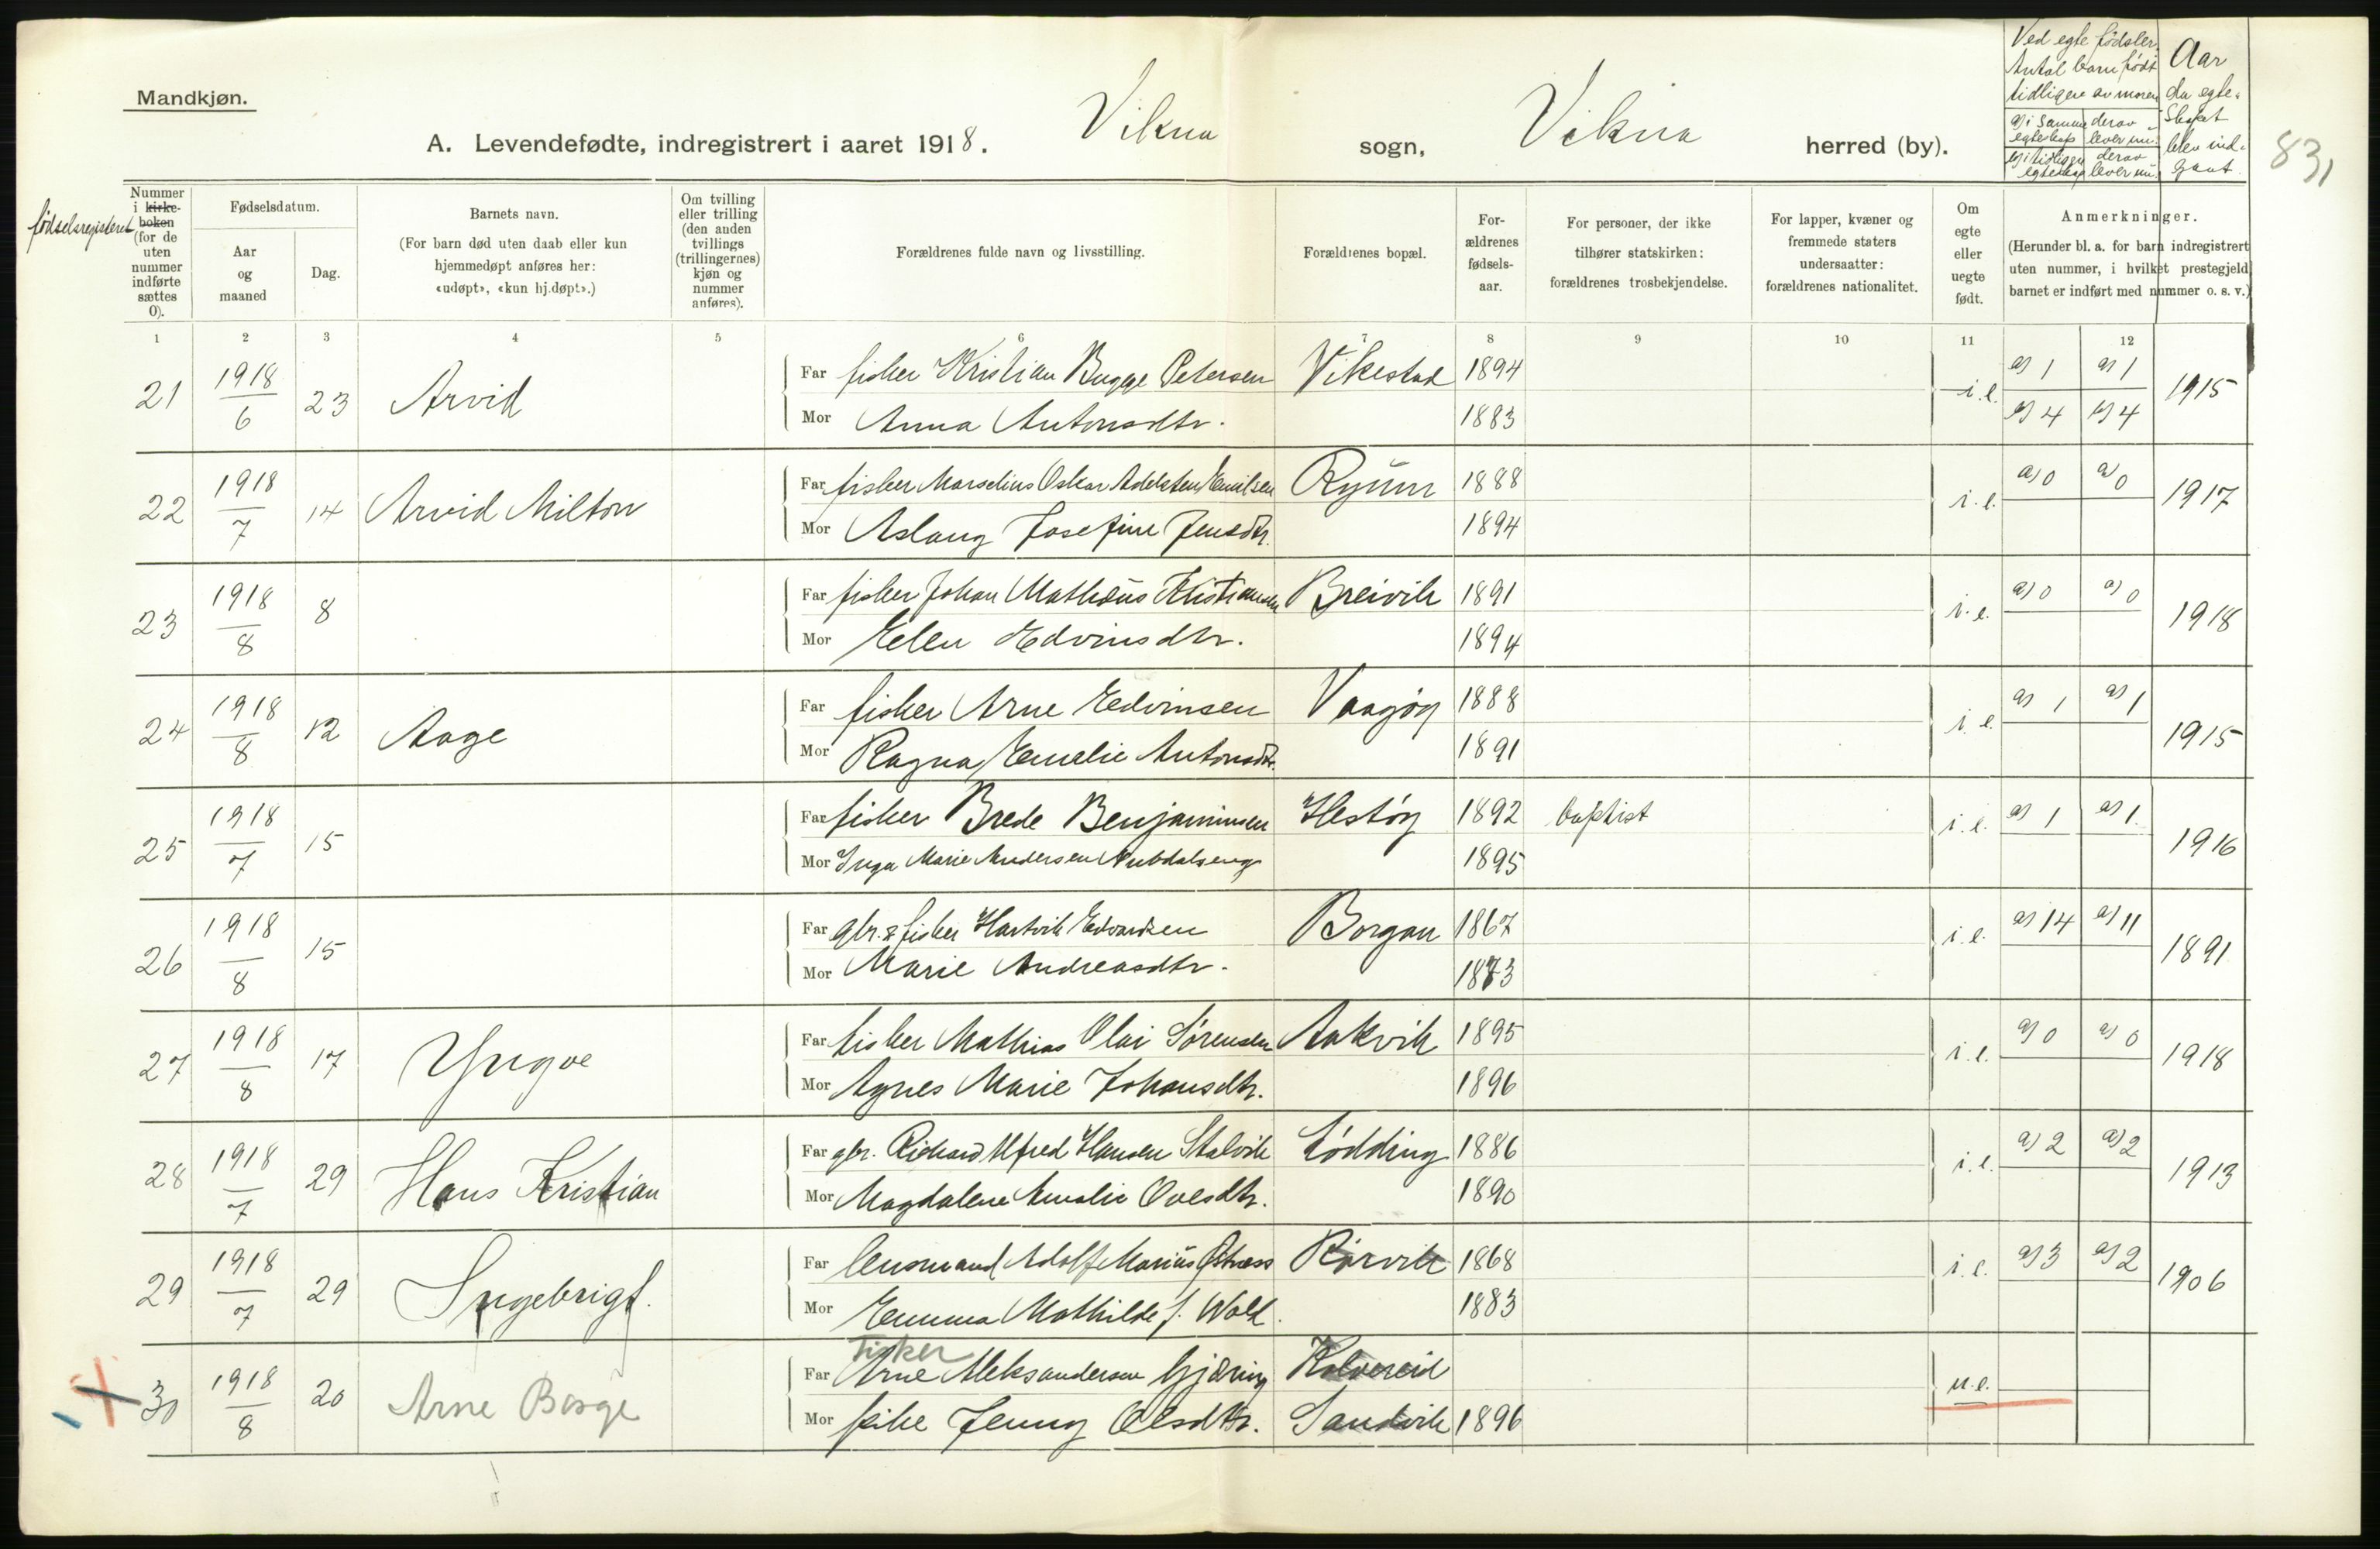 Mandkjøn.
A. Levendefødte, indregistrert i aaret 1918. Vikna sogn, Vikna herred (by).
Ved egte fødsler.
Antal barn født
tidligere av moren
a) i samme egteskap derav lever nu
b) i tidligere egteskap derav lever nu
Aar
da egte-
skapet
blev ind-
gaat
83,
fødselsregisteret
Nummer
i kirke-
boken
(for de
uten
nummer
indførte
sættes
0).
Fødselsdatum.
Aar
og
maaned
Dag.
Barnets navn.
(For barn død uten daab eller kun
hjemmedøpt anføres her:
«udøpt», «kun hj.døpt».)
Om tvilling
eller trilling
(den anden
tvillings
(trillingernes)
kjøn og
nummer
anføres).
Forældrenes fulde navn og livsstilling.
Forældrenes bopæl.
For-
ældrenes
fødsels-
aar.
For personer, der ikke
tilhører statskirken:
forældrenes trosbekjendelse.
For lapper, kvæner og
fremmede staters
undersaatter:
forældrenes nationalitet.
Om
egte
eller
uegte
født.
Anmerkninger.
(Herunder bl. a. for barn indregistrert
uten nummer, i hvilket prestegjeld
barnet er indført med nummer o. s. v.)
1 2 3 4 5 6 7 8 9 10 11 12
21 1918/6 23 Arvid Far fisker Kristian Bugge Petersen Vikestad 1894 i.e. a) 1 a) 1 1915
Mor Anna Antonsdtr. 1883 b) 4 b) 4
22 1918/7 14 Arvid Milton Far fisker Marselius Oskar Adelsten Emilsen Ryum 1888 i.e. a) 0 a) 0 1917
Mor Aslaug Josefine Jensdtr. 1894
23 1918/8 8 Far fisker Johan Mathæus Kristiansen Breivik 1891 i.e. a) 0 a) 0 1918
Mor Elen Edvinsdtr. 1894
24 1918/8 12 Aage Far fisker Arne Edvinsen Vaagøy 1888 i.e. a) 1 a) 1 1915
Mor Ragna Emelie Antonsdtr. 1891
25 1918/7 15 Far fisker Brede Benjaminsen Hestøy 1892 baptist i.e. a) 1 a) 1 1916
Mor Inga Marie Andersen Nubdalseng 1895
26 1918/8 15 Far gbr. & fisker Hartvik Edvardsen Borgan 1867 i.e. a) 14 a) 11 1891
Mor Marie Andreasdtr. 1873
27 1918/8 17 Yngve Far fisker Mathias Olai Sørensen Aakvik 1895 i.e. a) 0 a) 0 1918
Mor Agnes Marie Johansdtr. 1896
28 1918/7 29 Hans Kristian Far gbr. Rickard Alfred Hansen Stalvik Lødding 1886 i.e. a) 2 a) 2 1913
Mor Magdalene Amalie Ovesdtr. 1890
29 1918/7 29 Ingebrigt. Far lensmand Adolf Marius Østness Rørvik 1868 i.e. a) 3 a) 2 1906
Mor Emma Mathilde J. Wold. 1883
Fisker
30 1918/8 20 Arne Borge Far Arne Aleksandersen Gjæring Kolvereid u.e.
Mor pike Jenny Olsdtr. Sandvik 1896